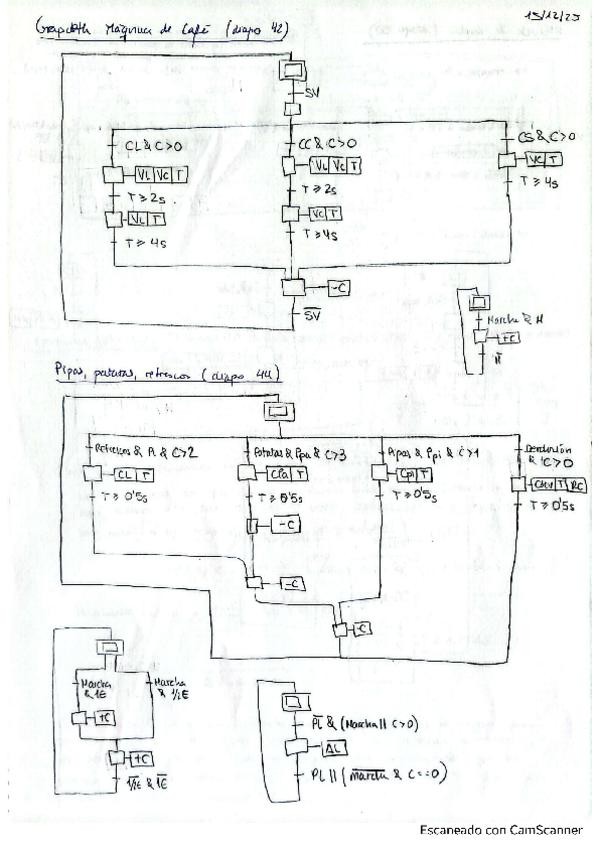 15/12/23
Grapcet Máquina de Café (diapo 42)
SV
CL & C>0
CC & C>0
CS & C>0
VL VC T
VL VC T
VC T
T ≥ 2s
T ≥ 2s
T ≥ 4s
VL T
VC T
T ≥ 4s
T ≥ 4s
-C
S̅V̅
Marcha & M
+C
M̅
Pipas, patatas, refrescos (diapo 44)
Refrescos & Pl & C>2
Patatas & Ppa & C>3
Pipas & Ppi & C>1
Devolución
& C>0
CL T
CPa T
CPi T
Cdev T RC
T ≥ 0'5s
T ≥ 0'5s
T ≥ 0'5s
T ≥ 0'5s
-C
-C
-C
Marcha
& 1E
Marcha
& 1/2E
+C
+C
1̅/̅2̅E̅ & 1̅E̅
P̅L̅ & (Marcha || C>0)
AL
PL || (m̅a̅r̅c̅h̅a̅ & C==0)
Escaneado con CamScanner